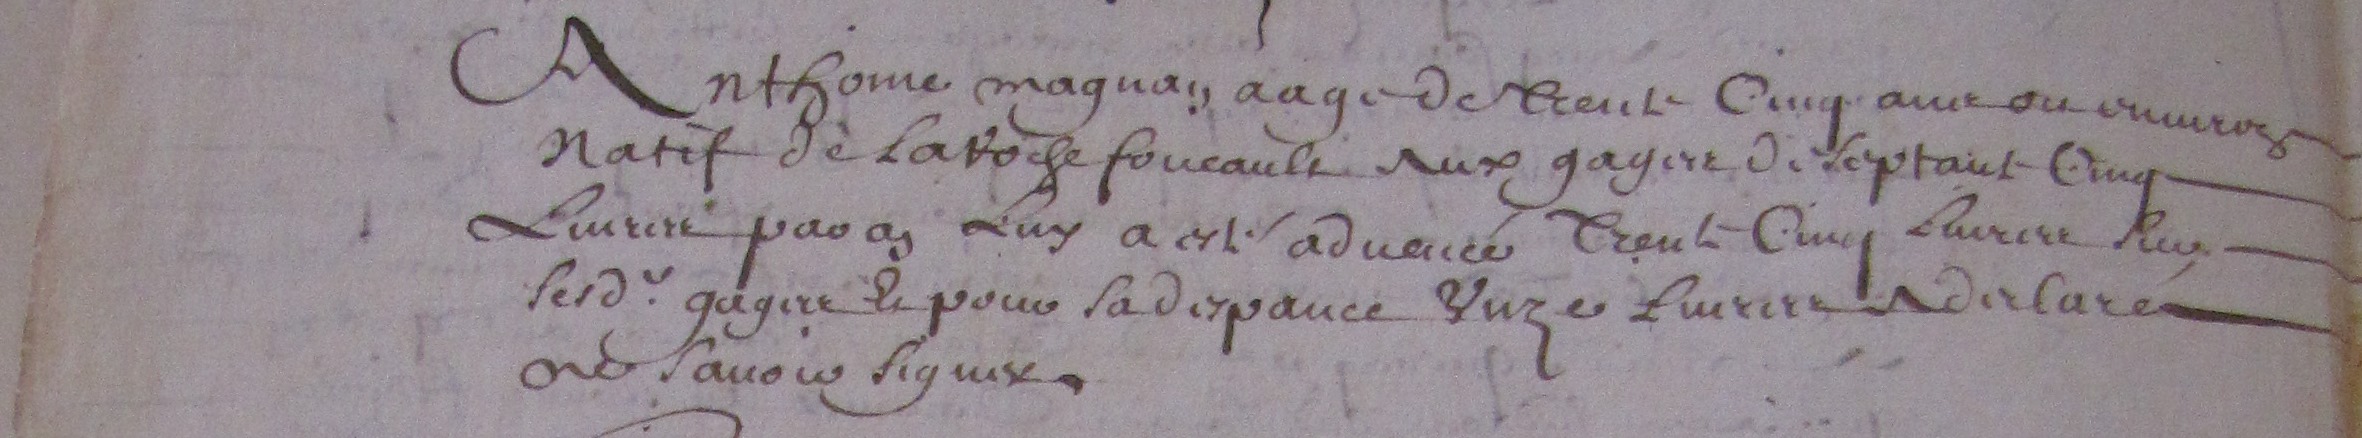 Anthoine magnan aagé de trente Cinq ans ou environ
Natif de la Rochefoucault aux gages de septante Cinq
Livres par an Luy a esté advencé trente Cinq livres sur
sesd.s gages Et pour sa despance Unze livres A desclaré
ne savoir signer